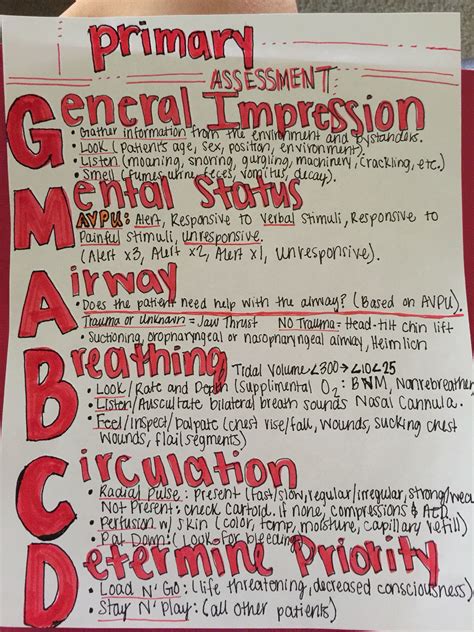 primary
ASSESSMENT:
General Impression
• Gather information from the environment and bystanders.
• Look (Patient's age, sex, position, environment).
• Listen (moaning, snoring, gurgling, machinery, crackling, etc.)
• Smell (fumes, urine, feces, vomitus, decay).
Mental Status
AVPU: Alert, Responsive to Verbal Stimuli, Responsive to
Painful Stimuli, Unresponsive.
(Alert x3, Alert x2, Alert x1, Unresponsive).
Airway
• Does the patient need help with the airway? (Based on AVPU).
Trauma or Unknown = Jaw Thrust NO Trauma = Head-tilt chin lift
• Suctioning, oropharyngeal or nasopharyngeal airway, Heimlich
Breathing Tidal Volume <300 → <10 <25
• Look/Rate and Depth (Supplimental O2: BVM, Nonrebreather
• Listen/Auscultate bilateral breath sounds Nasal Cannula.
• Feel/Inspect/Palpate (chest rise/fall, wounds, sucking chest
wounds, flail segments)
Circulation
• Radial Pulse: Present (fast/slow, regular/irregular, strong/
Not Present: check Carotid. if none, compressions & AED
• Perfusion w/ Skin (color, temp, moisture, capillary refill)
• Pat Down: (Look for bleeding)
Determine Priority
• Load N' Go: (life threatening, decreased consciousness)
• Stay N' Play: (all other patients)